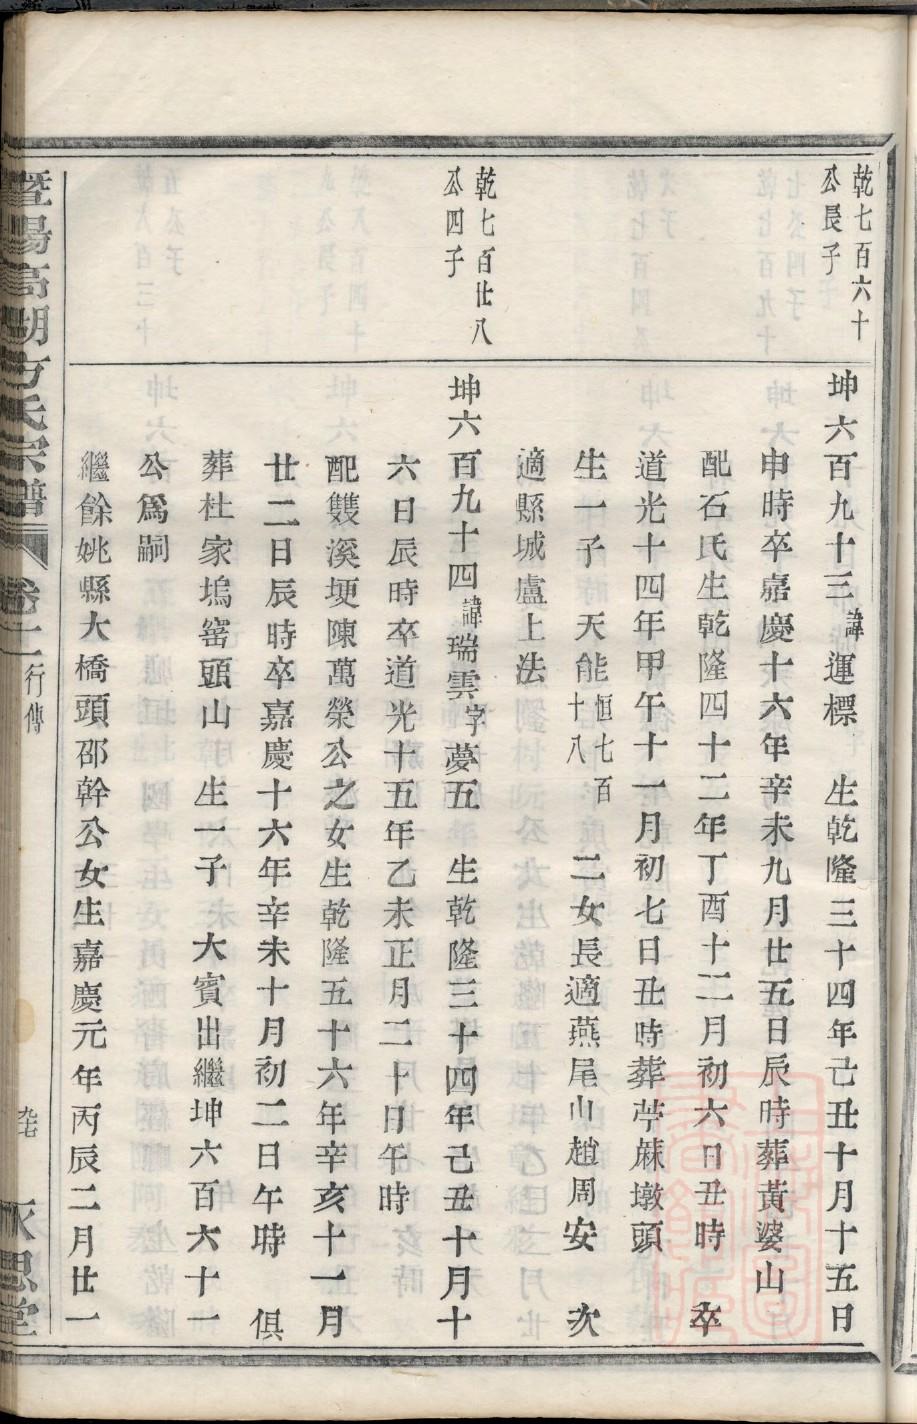 乾七百六十
公長子
坤六百九十三諱運標　生乾隆三十四年己丑十月十五日
申時卒嘉慶十六年辛未九月廿五日辰時葬黃婆山
配石氏生乾隆四十二年丁酉十二月初六日丑時　卒
道光十四年甲午十一月初七日丑時葬苧蔴墩頭
生一子　天能恒七百十八　二女長適燕尾山趙周安　次
適縣城盧上法
乾七百廿八
公四子
坤六百九十四諱瑞雲字夢五　生乾隆三十四年己丑十月十
六日辰時卒道光十五年乙未正月二十日午時
配雙溪埂陳萬榮公之女生乾隆五十六年辛亥十一月
廿二日辰時卒嘉慶十六年辛未十月初二日午時　俱
葬杜家塢窰頭山　生一子　大賓出繼坤六百六十一
公爲嗣
繼餘姚縣大橋頭邵幹公女生嘉慶元年丙辰二月廿一
暨陽高湖方氏宗譜　卷二　行傳　永思堂